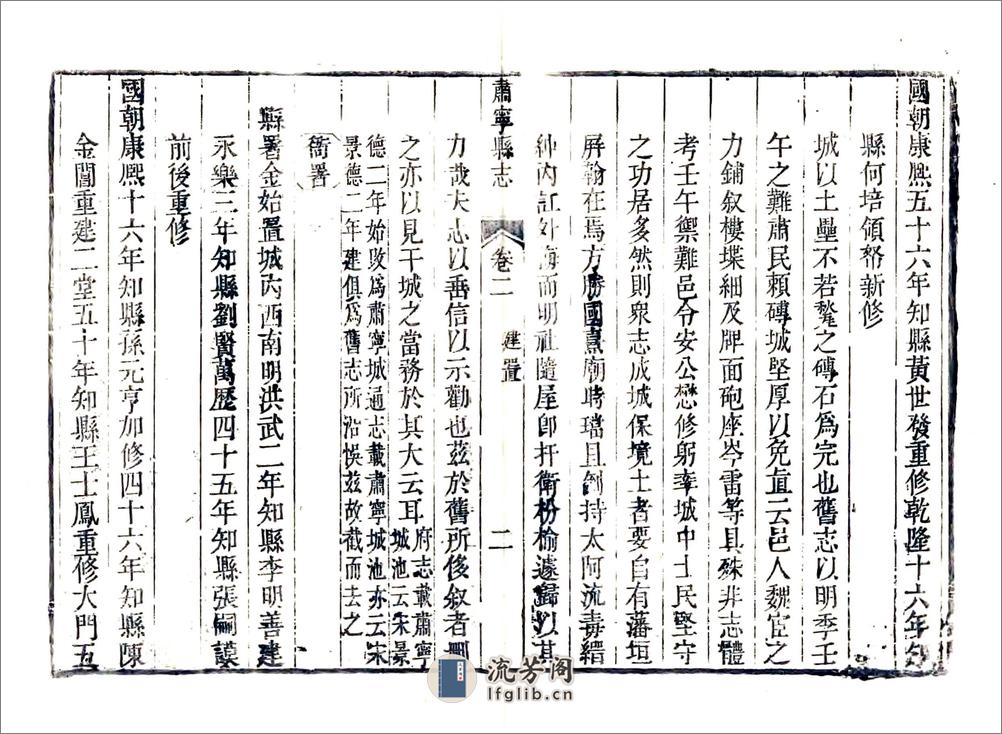 國朝康熙五十六年知縣黃世發重修乾隆十六年知
縣何培領帑新修
城以土壘不若甃之磚石爲完也舊志以明季壬
午之難肅民賴磚城堅厚以免直云邑人魏宦之
力鋪叙樓堞細及牌面砲座岑雷等具殊非志體
考壬午禦難邑令安公懋修躬率城中士民堅守
之功居多然則衆志成城保境土者要自有藩垣
屏翰在焉方勝國熹廟時璫且劍持太阿流毒縉
紳內訌外海而明社隨屋卽扞衛枌榆遽歸以其
肅寧縣志
卷二
建置
二
力哉夫志以垂信以示勸也茲於舊所後叙者刪
之亦以見干城之當務於其大云耳
府志載肅寧
城池云宋景
德二年始改爲肅寧城通志載肅寧城池亦云宋
景德二年建俱爲舊志所沿悞茲故截而去之
衙署
縣署金始置城內西南明洪武二年知縣李明善建
永樂三年知縣劉賢萬歷四十五年知縣張嗣謨
前後重修
國朝康熙十六年知縣孫元亨加修四十六年知縣陳
金閶重建二堂五十年知縣王士鳳重修大門五
流芳阁
lfglib.cn